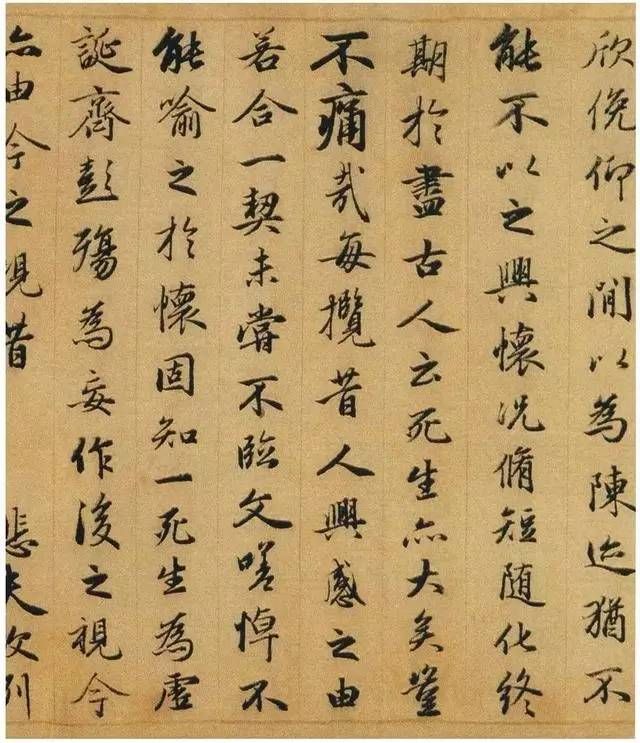 欣俛仰之閒以為陳迹猶不
能不以之興懷况脩短随化終
期於盡古人云死生亦大矣豈
不痛哉每攬昔人興感之由
若合一契未嘗不臨文嗟悼不
能喻之於懷固知一死生為虛
誕齊彭殤為妄作後之視今
亦由今之視昔 悲夫故列